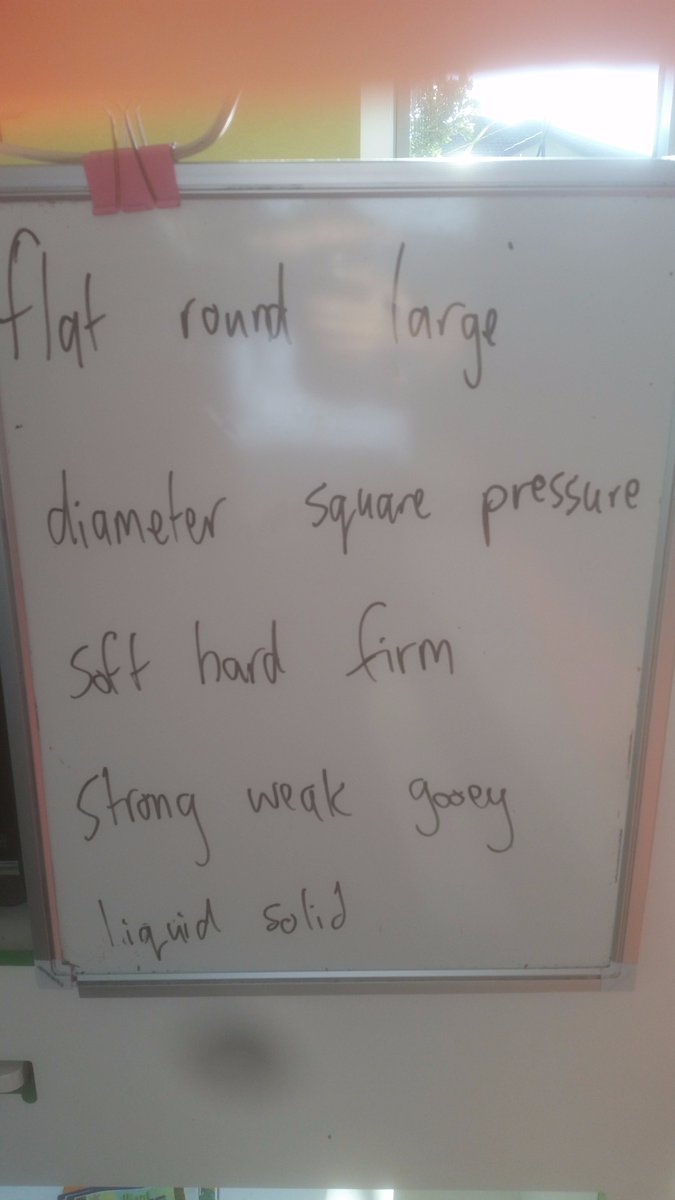 flat round large
diameter square pressure
soft hard firm
strong weak gooey
liquid solid